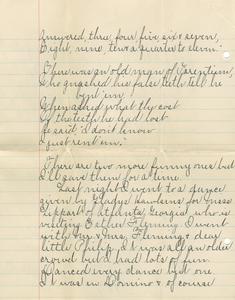 answered, three, four, five, six & seven,
Eight, nine, ten & a quarter to eleven."
There was an old man of Tarentum,
Who gnashed his false teeth till he
bent 'em;
When asked what they cost
Of the teeth he had lost
He said, "I don't know
I just rent 'em."
There are two more funny ones but
I'll save them for a time.
Last night I went to a dance
given by Gladys Hawkins for Miss
Lippart of Atlanta, Georgia, who is
visiting Esther Fleming. I went
with Mr & Mrs. Fleming & dear
little Philip. It was all an older
crowd but I had lots of fun.
Danced every dance but one.
It was in Domino & of course